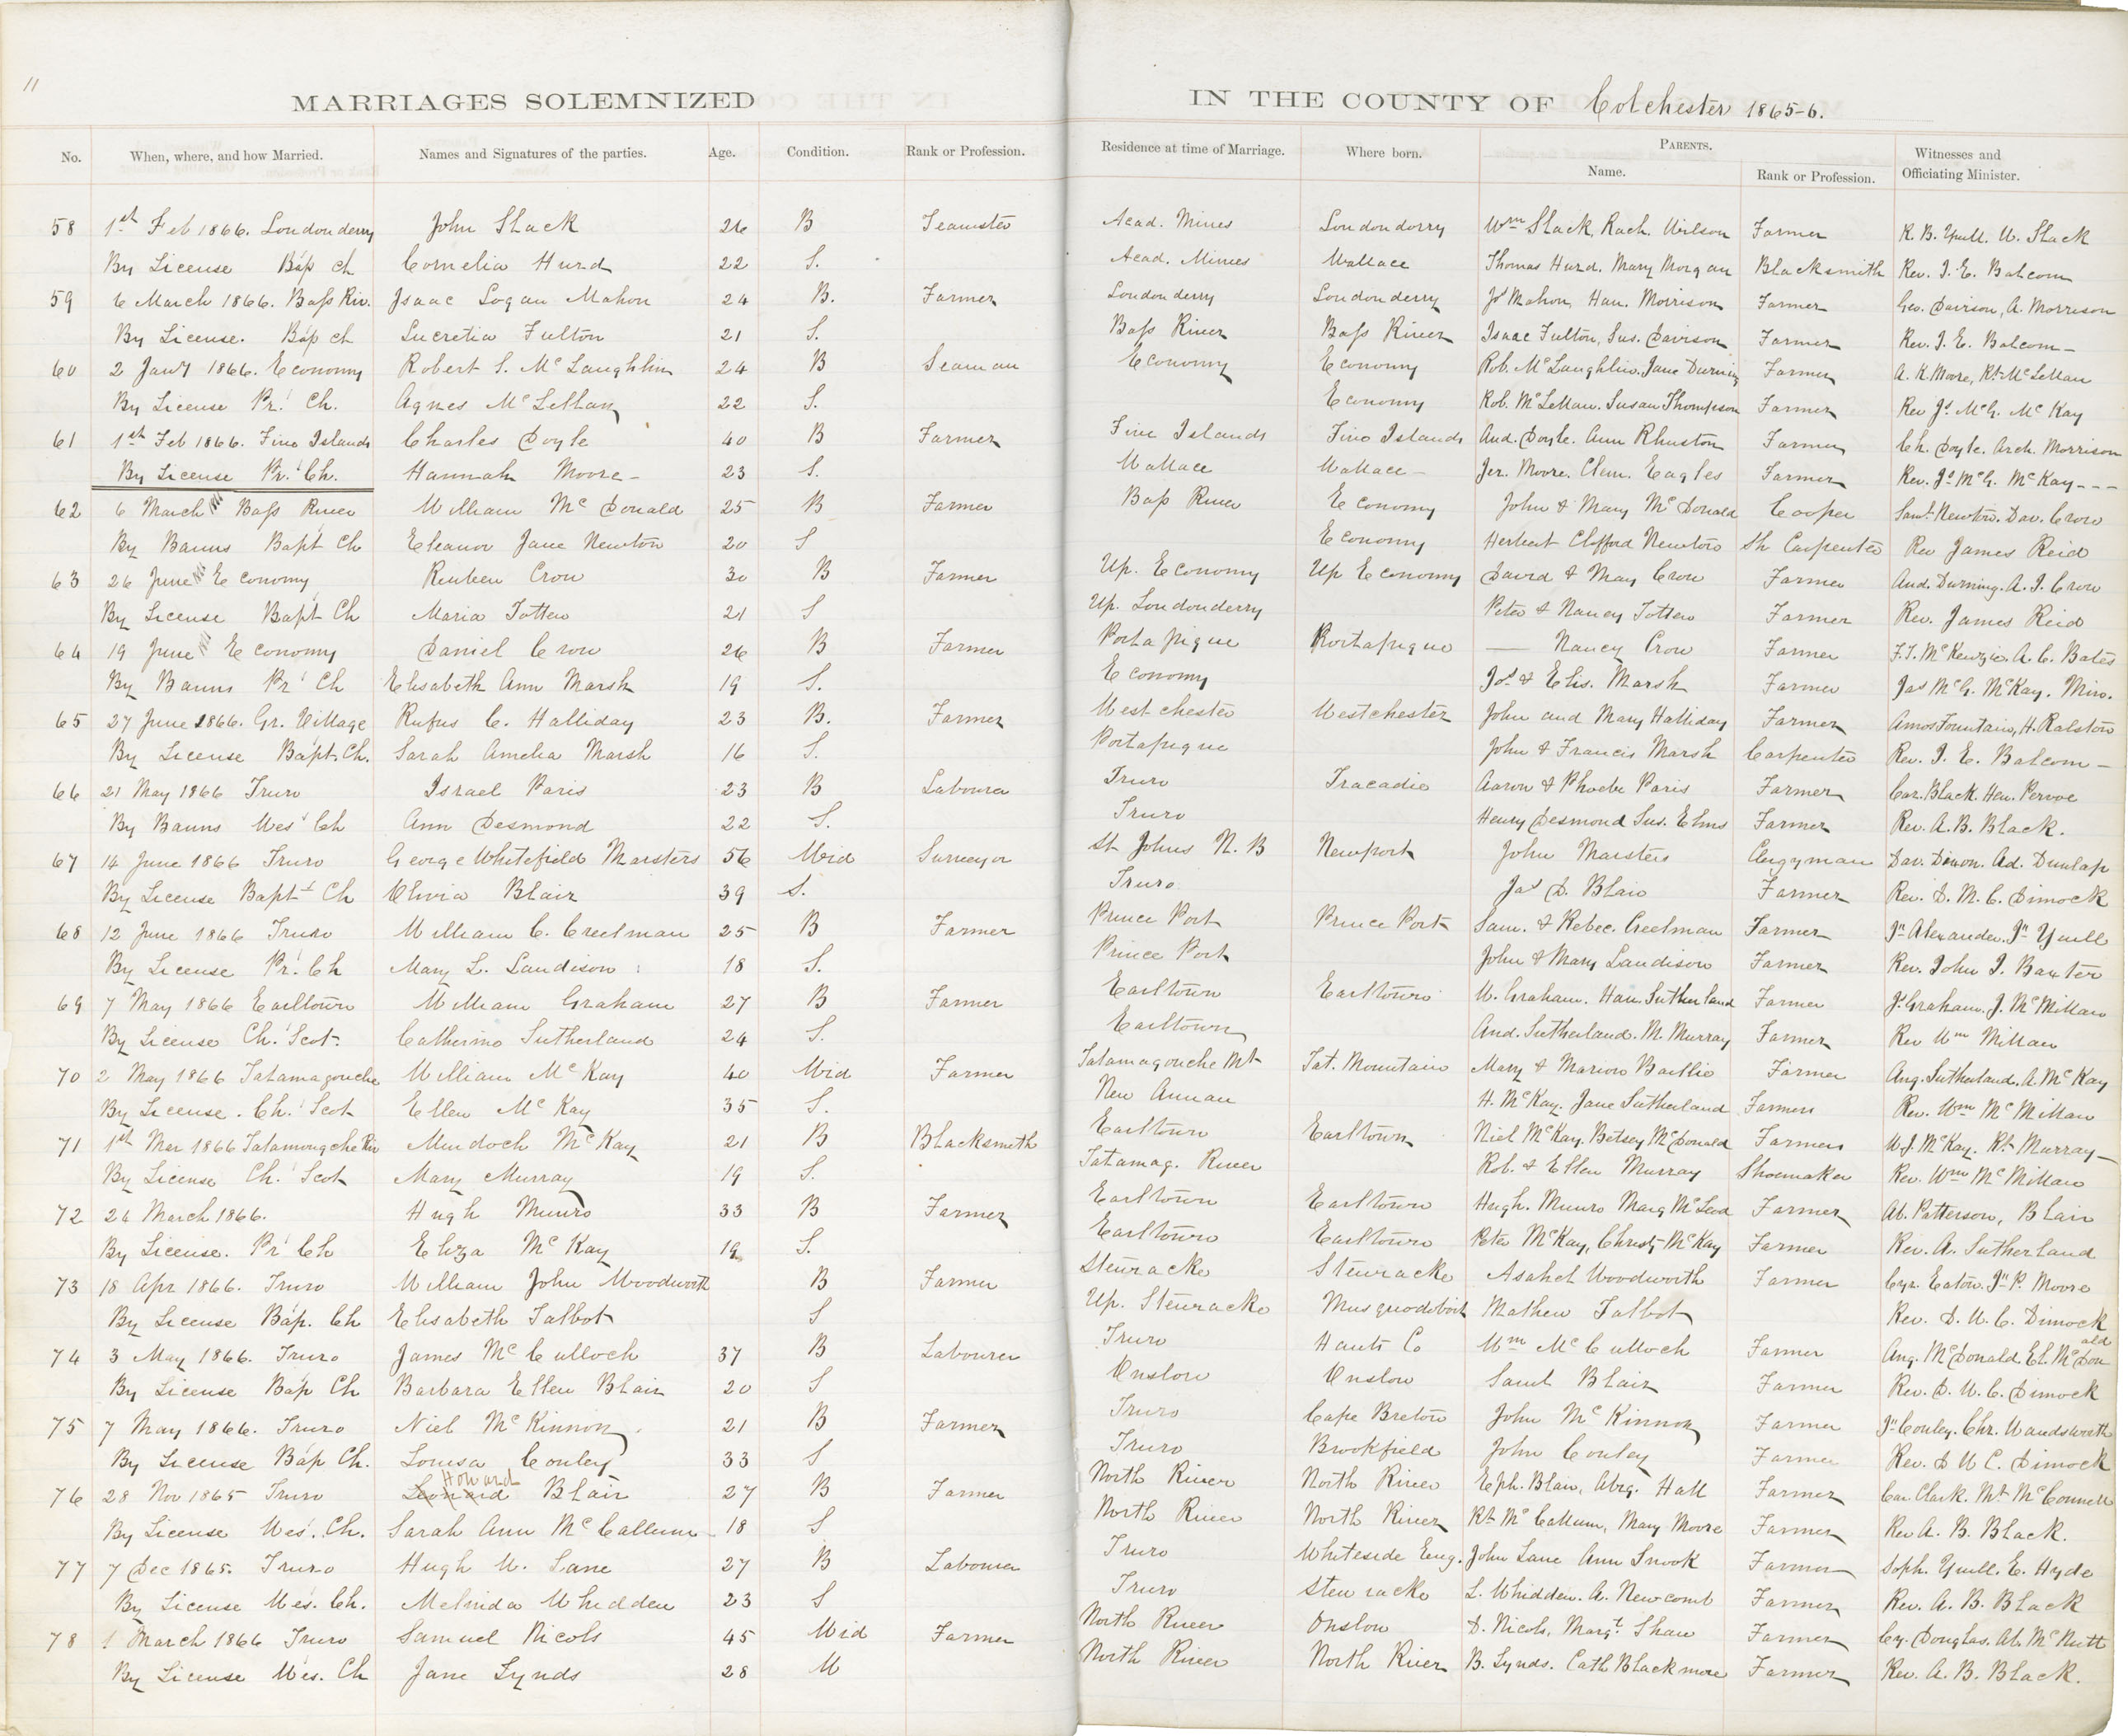 11
MARRIAGES SOLEMNIZED IN THE COUNTY OF Colchester 1865-6.
No. When, where, and how Married. Names and Signatures of the parties. Age. Condition. Rank or Profession. Residence at time of Marriage. Where born. PARENTS. Witnesses and
Name. Rank or Profession. Officiating Minister.
58 1st Feb 1866. Londonderry John Slack 26 B Teamster Acad. Mines Londonderry Wm Slack, Rach. Wilson Farmer R. B. Yuill. W. Slack
By License Bap ch Cornelia Hurd 22 S. Acad. Mines Wallace Thomas Hurd. Mary Morgan Blacksmith Rev. J. E. Balcom
59 6 March 1866. Bass Riv. Isaac Logan Mahon 24 B. Farmer Londonderry Londonderry Js Mahon, Han. Morrison Farmer Geo. Davison, A. Morrison
By License. Bap ch Lucretia Fulton 21 S. Bass River Bass River Isaac Fulton, Sus. Davison Farmer Rev. J. E. Balcom
60 2 Jany 1866. Economy Robert S. McLaughlin 24 B Seaman Economy Economy Rob. McLaughlin. Jane Durning Farmer A. K. Moore, Rt McLellan
By License Pr. Ch. Agnes McLellan 22 S. Economy Rob. McLellan. Susan Thompson Farmer Rev Js McG. McKay
61 1st Feb 1866. Five Islands Charles Doyle 40 B Farmer Five Islands Five Islands And. Doyle. Ann Rhuston Farmer Ch. Doyle. Arch. Morrison
By License Pr. Ch. Hannah Moore 23 S. Wallace Wallace Jer. Moore. Clem. Eagles Farmer Rev. Js McG. McKay
62 6 March " Bass River William McDonald 25 B Farmer Bass River Economy John & Mary McDonald Cooper Saml. Newton. Dav. Crow
By Banns Bapt Ch Eleanor Jane Newton 20 S Economy Herbert Clifford Newton Sh Carpenter Rev James Reid
63 26 June " Economy Reuben Crow 30 B Farmer Up. Economy Up Economy David & May Crow Farmer And. Durning. A. J. Crow
By License Bapt Ch Maria Totten 21 S Up. Londonderry Peter & Nancy Totten Farmer Rev. James Reid
64 19 June " Economy Daniel Crow 26 B Farmer Portapique Portapique — Nancy Crow Farmer F. T. McKenzie A. C. Bates
By Banns Pr Ch Elisabeth Ann Marsh 19 S. Economy Jos & Elis. Marsh Farmer Jas McG. McKay. Min.
65 27 June 1866. Gr. Village Rufus C. Halliday 23 B. Farmer Westchester Westchester John and Mary Halliday Farmer Amos Fountain, H. Ralston
By License Bapt. Ch. Sarah Amelia Marsh 16 S. Portapique John & Francis Marsh Carpenter Rev. J. E. Balcom
66 21 May 1866 Truro Israel Paris 23 B Labourer Truro Tracadie Aaron & Phoebe Paris Farmer Car. Black. Hen. Pervoe
By Banns Wes Ch Ann Desmond 22 S. Truro Henry Desmond Sus. Elms Farmer Rev. A. B. Black.
67 14 June 1866 Truro George Whitefield Marsters 56 Wid Surveyor St Johns N. B Newport John Marsters Clergyman Dav. Dixon. Ad. Dunlap
By License Bapt Ch Olivia Blair 39 S. Truro Jas D. Blair Farmer Rev. D. M. C. Dimock
68 12 June 1866 Truro William C. Creelman 25 B Farmer Prince Port Prince Port Sam. & Rebec. Creelman Farmer Jn Alexander. Jn Yuill
By License Pr. Ch Mary L. Landison 18 S. Prince Port John & Mary Landison Farmer Rev. John I. Baxter
69 7 May 1866 Earltown William Graham 27 B Farmer Earltown Earltown W. Graham. Han Sutherland Farmer Js Graham. J. McMillan
By License Ch. Scot. Catherine Sutherland 24 S. Earltown And. Sutherland. M. Murray Farmer Rev Wm Millan
70 2 May 1866 Tatamagouche William McKay 40 Wid Farmer Tatamagouche Mt Tat. Mountain Mary & Marion Baillie Farmer Ang. Sutherland. A. McKay
By License. Ch. Scot Ellen McKay 35 S. New Annan H. McKay. Jane Sutherland Farmer Rev. Wm McMillan
71 1st Mar 1866 Tatamougche Riv Murdoch McKay 21 B Blacksmith Earltown Earltown Niel McKay. Betsey McDonald Farmer W. J. McKay. Rt Murray
By License Ch. Scot Mary Murray 19 S. Tatamag. River Rob. & Ellen Murray Shoemaker Rev. Wm McMillan
72 24 March 1866. Hugh Munro 33 B Farmer Earltown Earltown Hugh. Munro Marg McLeod Farmer Al. Patterson, Blair
By License. Pr Ch Eliza McKay 19 S. Earltown Earltown Peter McKay, Christy McKay Farmer Rev. A. Sutherland
73 18 Apr 1866. Truro William John Woodworth B Farmer Stewiacke Stewiacke Asahel Woodworth Farmer Cyr. Eaton. Jn P. Moore
By License Bap. Ch Elisabeth Talbot S Up. Stewiacke Musquodoboit Mathew Talbot Rev. D. W. C. Dimock
74 3 May 1866. Truro James McCulloch 37 B Labourer Truro Hants Co Wm McCulloch Farmer Ang. McDonald. El. McDonald
By License Bap Ch Barbara Ellen Blair 20 S Onslow Onslow Saml Blair Farmer Rev. D. W. C. Dimock
75 7 May 1866. Truro Niel McKinnon 21 B Farmer Truro Cape Breton John McKinnon Farmer Jn Conley. Chr. Wandsworth
By License Bap Ch. Louisa Conley 33 S Truro Brookfield John Conley Farmer Rev. D W C. Dimock
76 28 Nov 1865 Truro Leonard Howard Blair 27 B Farmer North River North River Eph. Blair, Abig. Hall Farmer Car. Clark. Mt McConnell
By License Wes. Ch. Sarah Ann McCallum 18 S North River North River Rt McCallum, Mary Moore Farmer Rev A. B. Black.
77 7 Dec 1865. Truro Hugh W. Lane 27 B Labourer Truro Whiteside Eng. John Lane Ann Snook Farmer Soph. Yuill. E. Hyde
By License Wes. Ch. Melinda Whidden 23 S Truro Stewiacke L. Whidden. A. Newcomb Farmer Rev. A. B. Black
78 1 March 1866 Truro Samuel Nicols 45 Wid Farmer North River Onslow D. Nicols, Margt. Shaw Farmer Cy. Douglas. Al. McNutt
By License Wes. Ch Jane Lynds 28 W North River North River B. Lynds. Cath Blackmore Farmer Rev. A. B. Black.